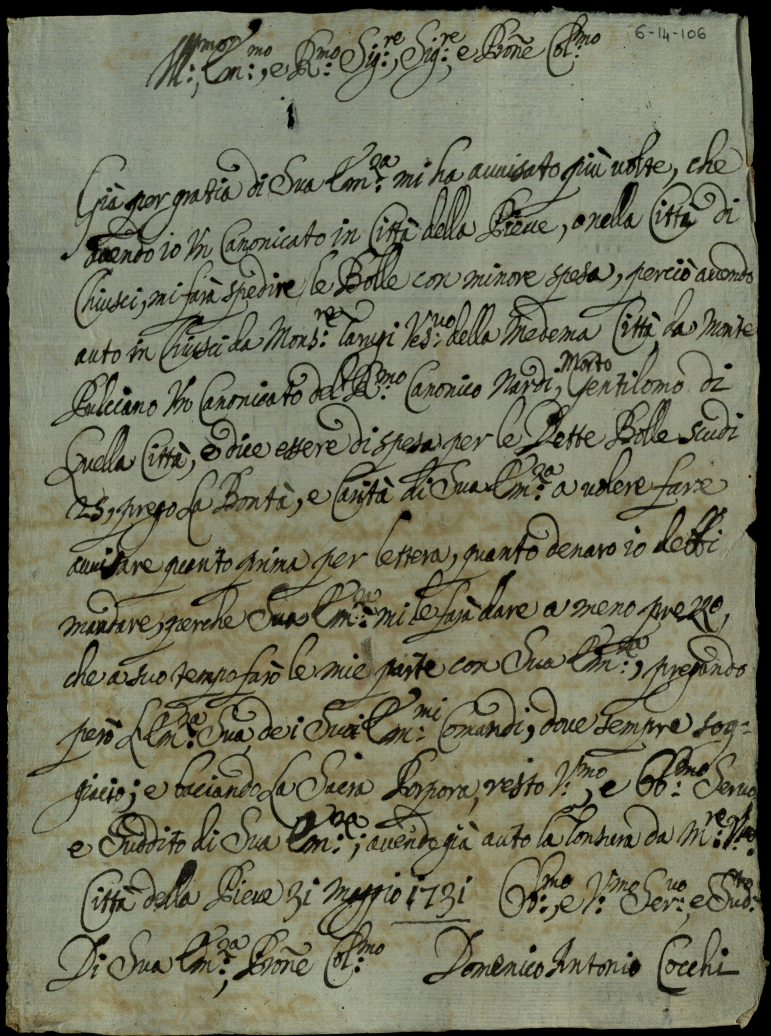 6-14-106
Em:mo, e R:mo Sig:re, Sig:re, e Prone Col:mo
Già per gratia di Sua Em:za mi ha auuisato più uolte, che
auendo io Vn Canonicato in Città della Pieue, o nella Città di
Chiusci, mi farà spedire le Bolle con minore spesa, perciò auendo
auto in Chiusci da Mons:re Tarugi Ves:uo della Medema Città, da Monte
Pulciano Vn Canonicato del R:mo Canonico Nardi, Morto Gentilomo di
Quella Città, e dice essere di spesa per le Dette Bolle scudi
25, prego La Bontà, e Carità di Sua Em:za a uolere fare
auuisare quanto prima per lettera, quanto denaro io debbi
mandare, perche Sua Em:za mi le farà dare a meno prezzo,
che a suo tempo farò le mie parte con Sua Em:za, pregando
però L Em:za Sua dei Suoi Em:mi Comandi, doue sempre sog=
giacio; e baciando La Sacra Porpora, resto V:mo, e Ob:mo Seruo
e Suddito di Sua Em:za; auendo già auto la Tonsura da M:re V:uo
Città della Pieue 31 Maggio 1731 Ob:mo, e V:mo Ser:uo, e Sud:to
Di Sua Em:za, Prone Col:mo Domenico Antonio Cocchi